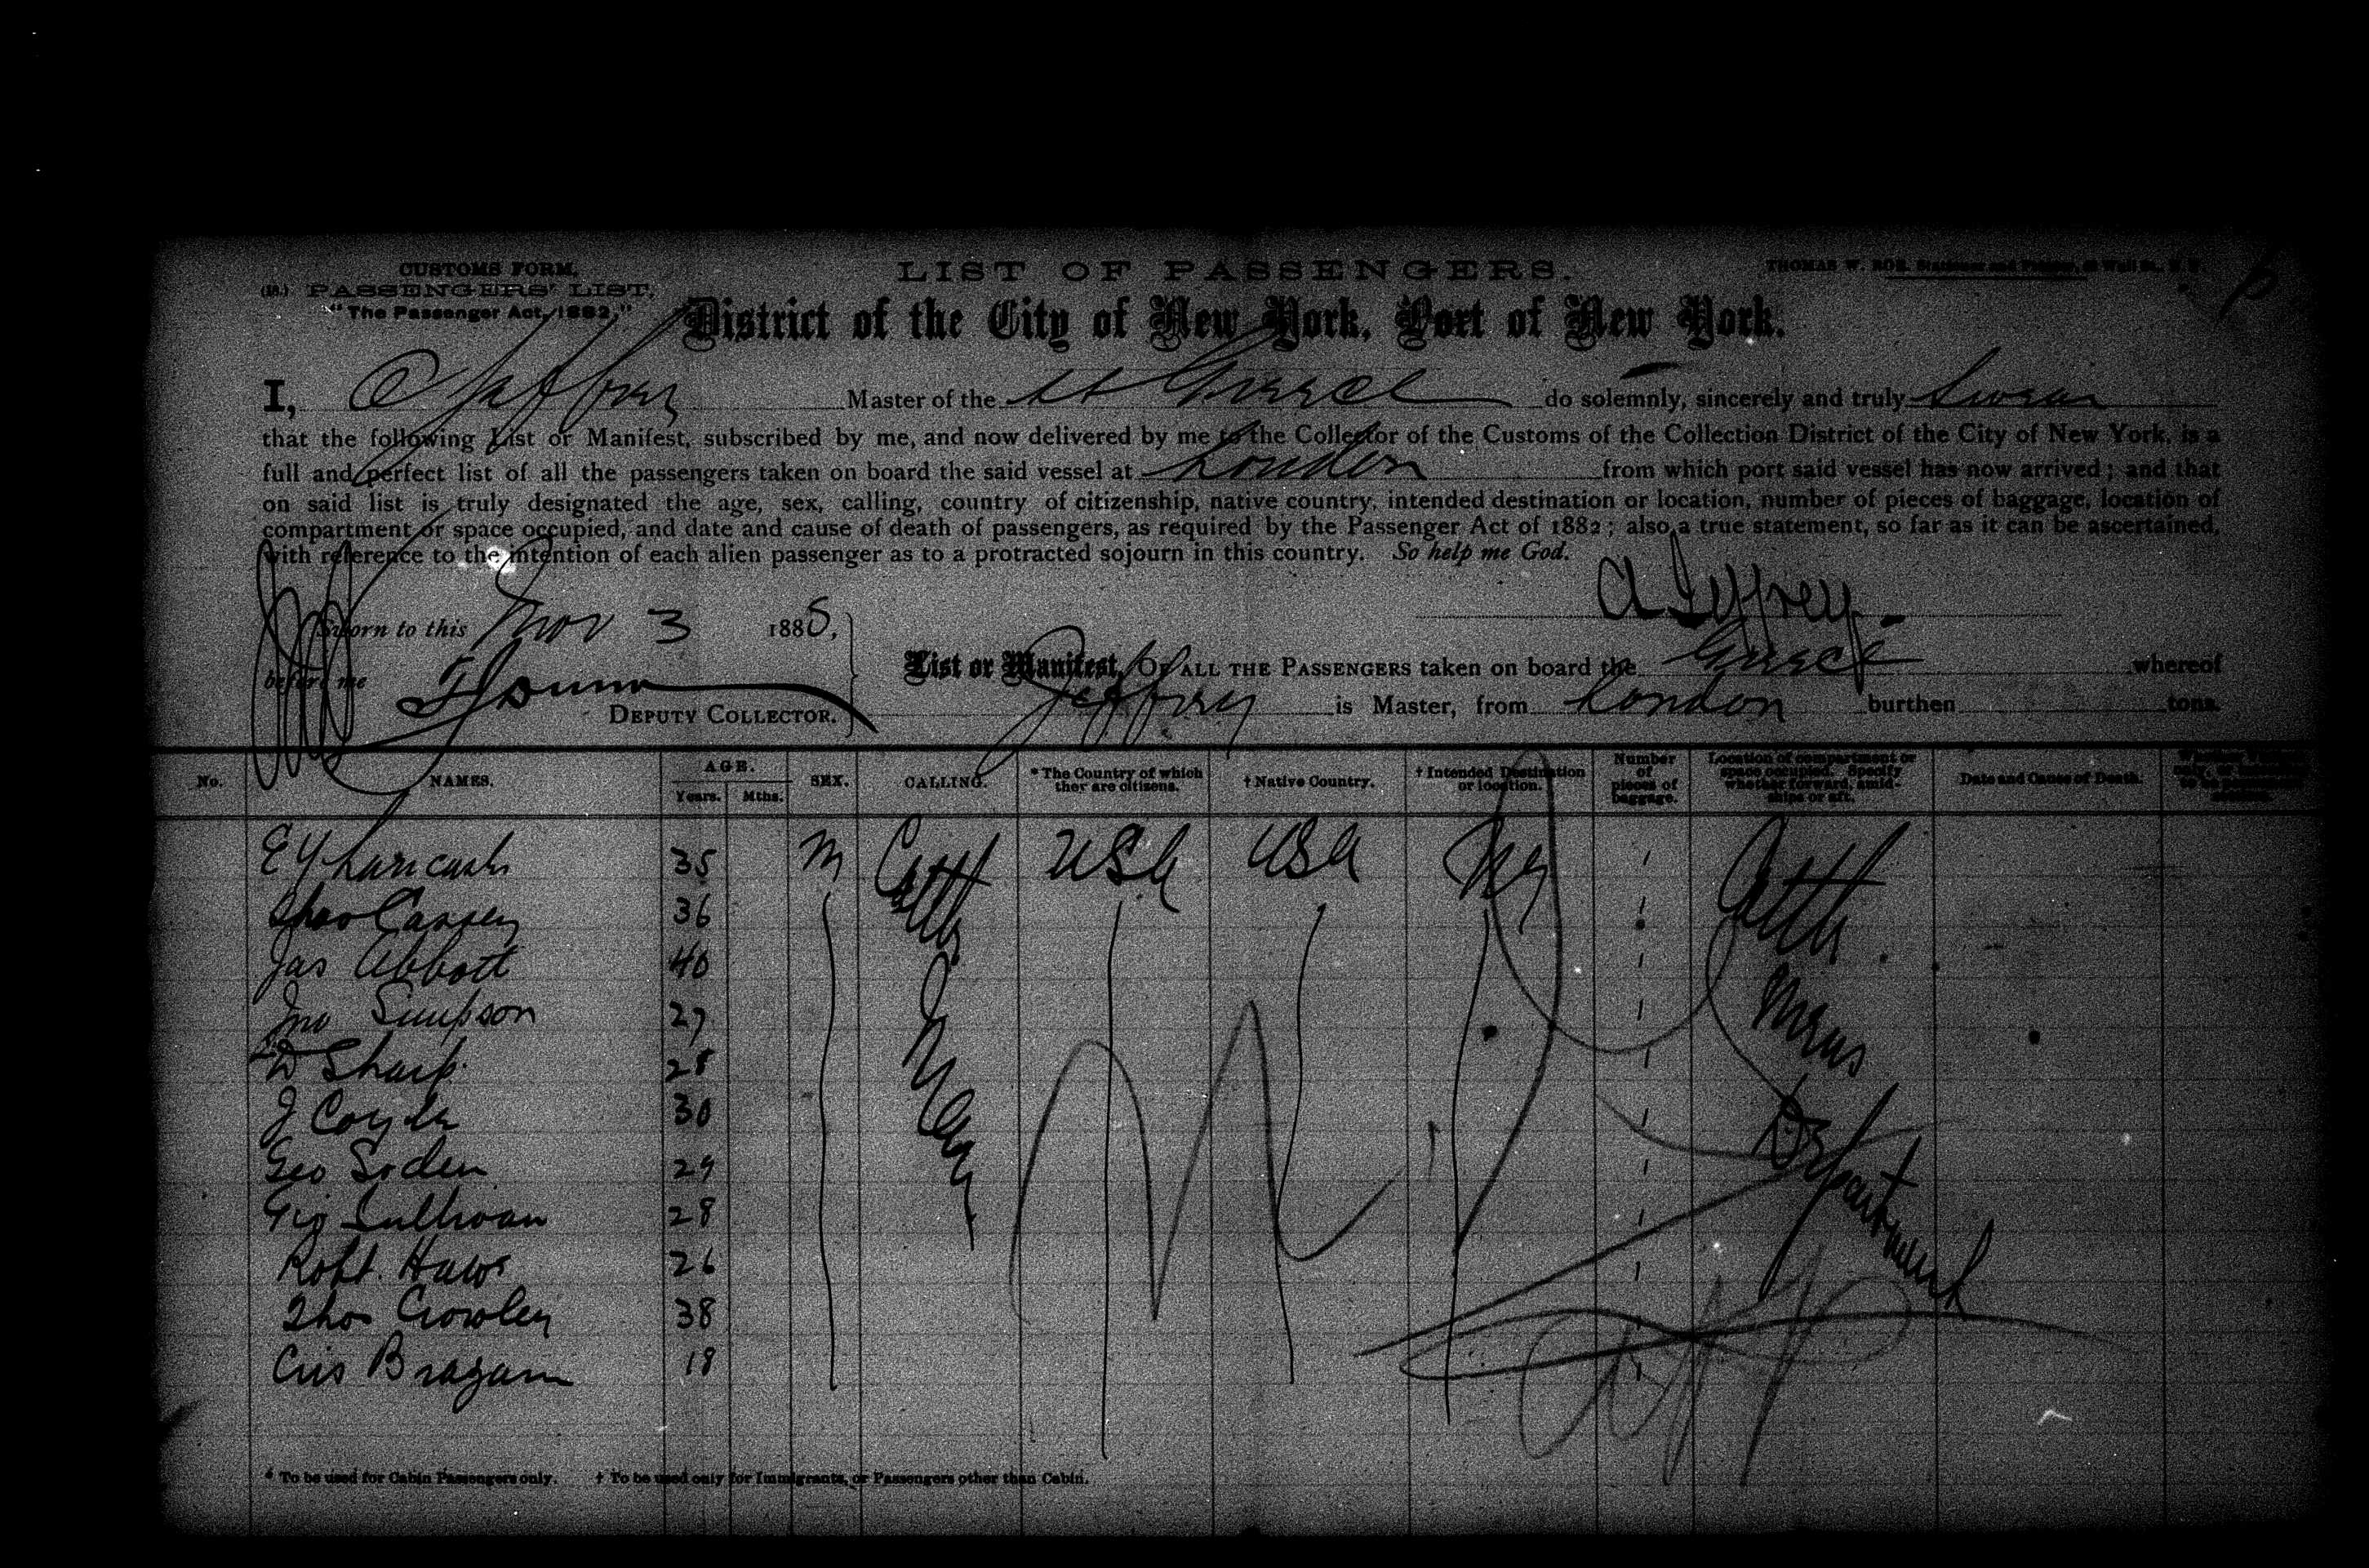 CUSTOMS FORM.
PASSENGERS' LIST.
"The Passenger Act, 1882."
LIST OF PASSENGERS.
THOMAS W. Stationer and Printer, Wall St., N. Y.
District of the City of New York, Port of New York.
I, Jeffrey Master of the Greece do solemnly, sincerely and truly swear
that the following List or Manifest, subscribed by me, and now delivered by me to the Collector of the Customs of the Collection District of the City of New York, is a
full and perfect list of all the passengers taken on board the said vessel at London from which port said vessel has now arrived; and that
on said list is truly designated the age, sex, calling, country of citizenship, native country, intended destination or location, number of pieces of baggage, location of
compartment or space occupied, and date and cause of death of passengers, as required by the Passenger Act of 1882; also a true statement, so far as it can be ascertained,
with reference to the intention of each alien passenger as to a protracted sojourn in this country. So help me God.
A Jeffrey.
Sworn to this Nov 3 1885,
before me
DEPUTY COLLECTOR.
List or Manifest, OF ALL THE PASSENGERS taken on board the Greece whereof
Jeffrey is Master, from London burthen tons.
No. NAMES. AGE. Years. Mths. SEX. CALLING. * The Country of which ther are citizens. † Native Country. † Intended Destination or location. Number of pieces of baggage. Location of compartment or space occupied. Specify whether forward, amidships or aft. Date and Cause of Death.
E Y 35 M Cattle USA USA NY Cattle
36
Jas Abbott 40
Jno Simpson 27 Mens
W Sharp 28
J 30 Department
Geo Soden 29
Sullivan 28
Robt. Haws 26
Thos Crowley 38
Cris Bragam 18
* To be used for Cabin Passengers only. † To be used only for Immigrants, or Passengers other than Cabin.